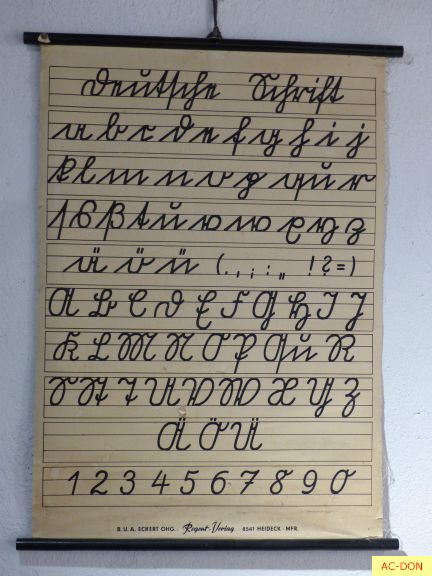 Deutsche Schrift
a b c d e f g h i j
k l m n o p qu r
ſ s ß t u v w x y z
ä ö ü ( . , ; : „ ! ? = )
A B C D E F G H I J
K L M N O P Qu R
S St T U V W X Y Z
Ä Ö Ü
1 2 3 4 5 6 7 8 9 0
B. U. A. ECKERT OHG. Regent-Verlag 8541 HEIDECK - MFR.
AC-DON